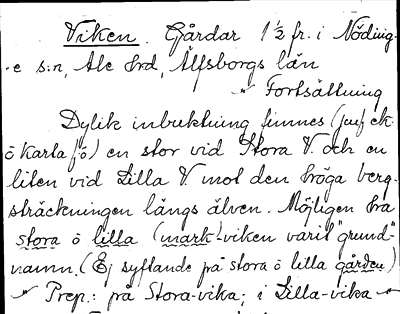 Viken. Gårdar 1 ½ fr. i Nöding-
-e s:n, Ale hrd, Älfsborgs län
" Fortsättning
Dylik inbuktning finnes (jmf ek.
ö karta fö) en stor vid Stora V. och en
liten vid Lilla V. mot den höga berg-
sträckningen längs älven. Möjligen ha
stora ö lilla (mark)-viken varit "grund"-
namn. (Ej syftande på stora ö lilla gården)
" Prep.: på Stora-vika; i Lilla-vika "